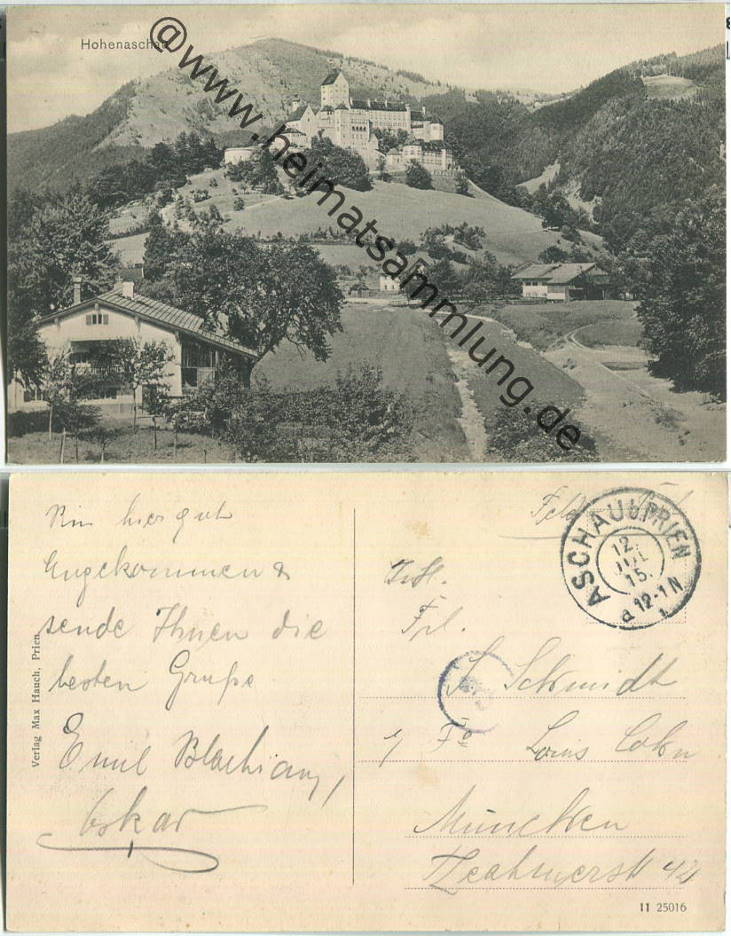 Hohenaschau
@www.heimatsammlung.de
Bin hier gut
Angekommen &
sende Ihnen die
besten Grüße
Emil
Oskar
Verlag Max Hauch, Prien
Feldpost
ASCHAU b. PRIEN
12. JUL 15.
a 12-1 N
Frl.
Schmidt
Fa Louis Cohn
München
42
11 25016